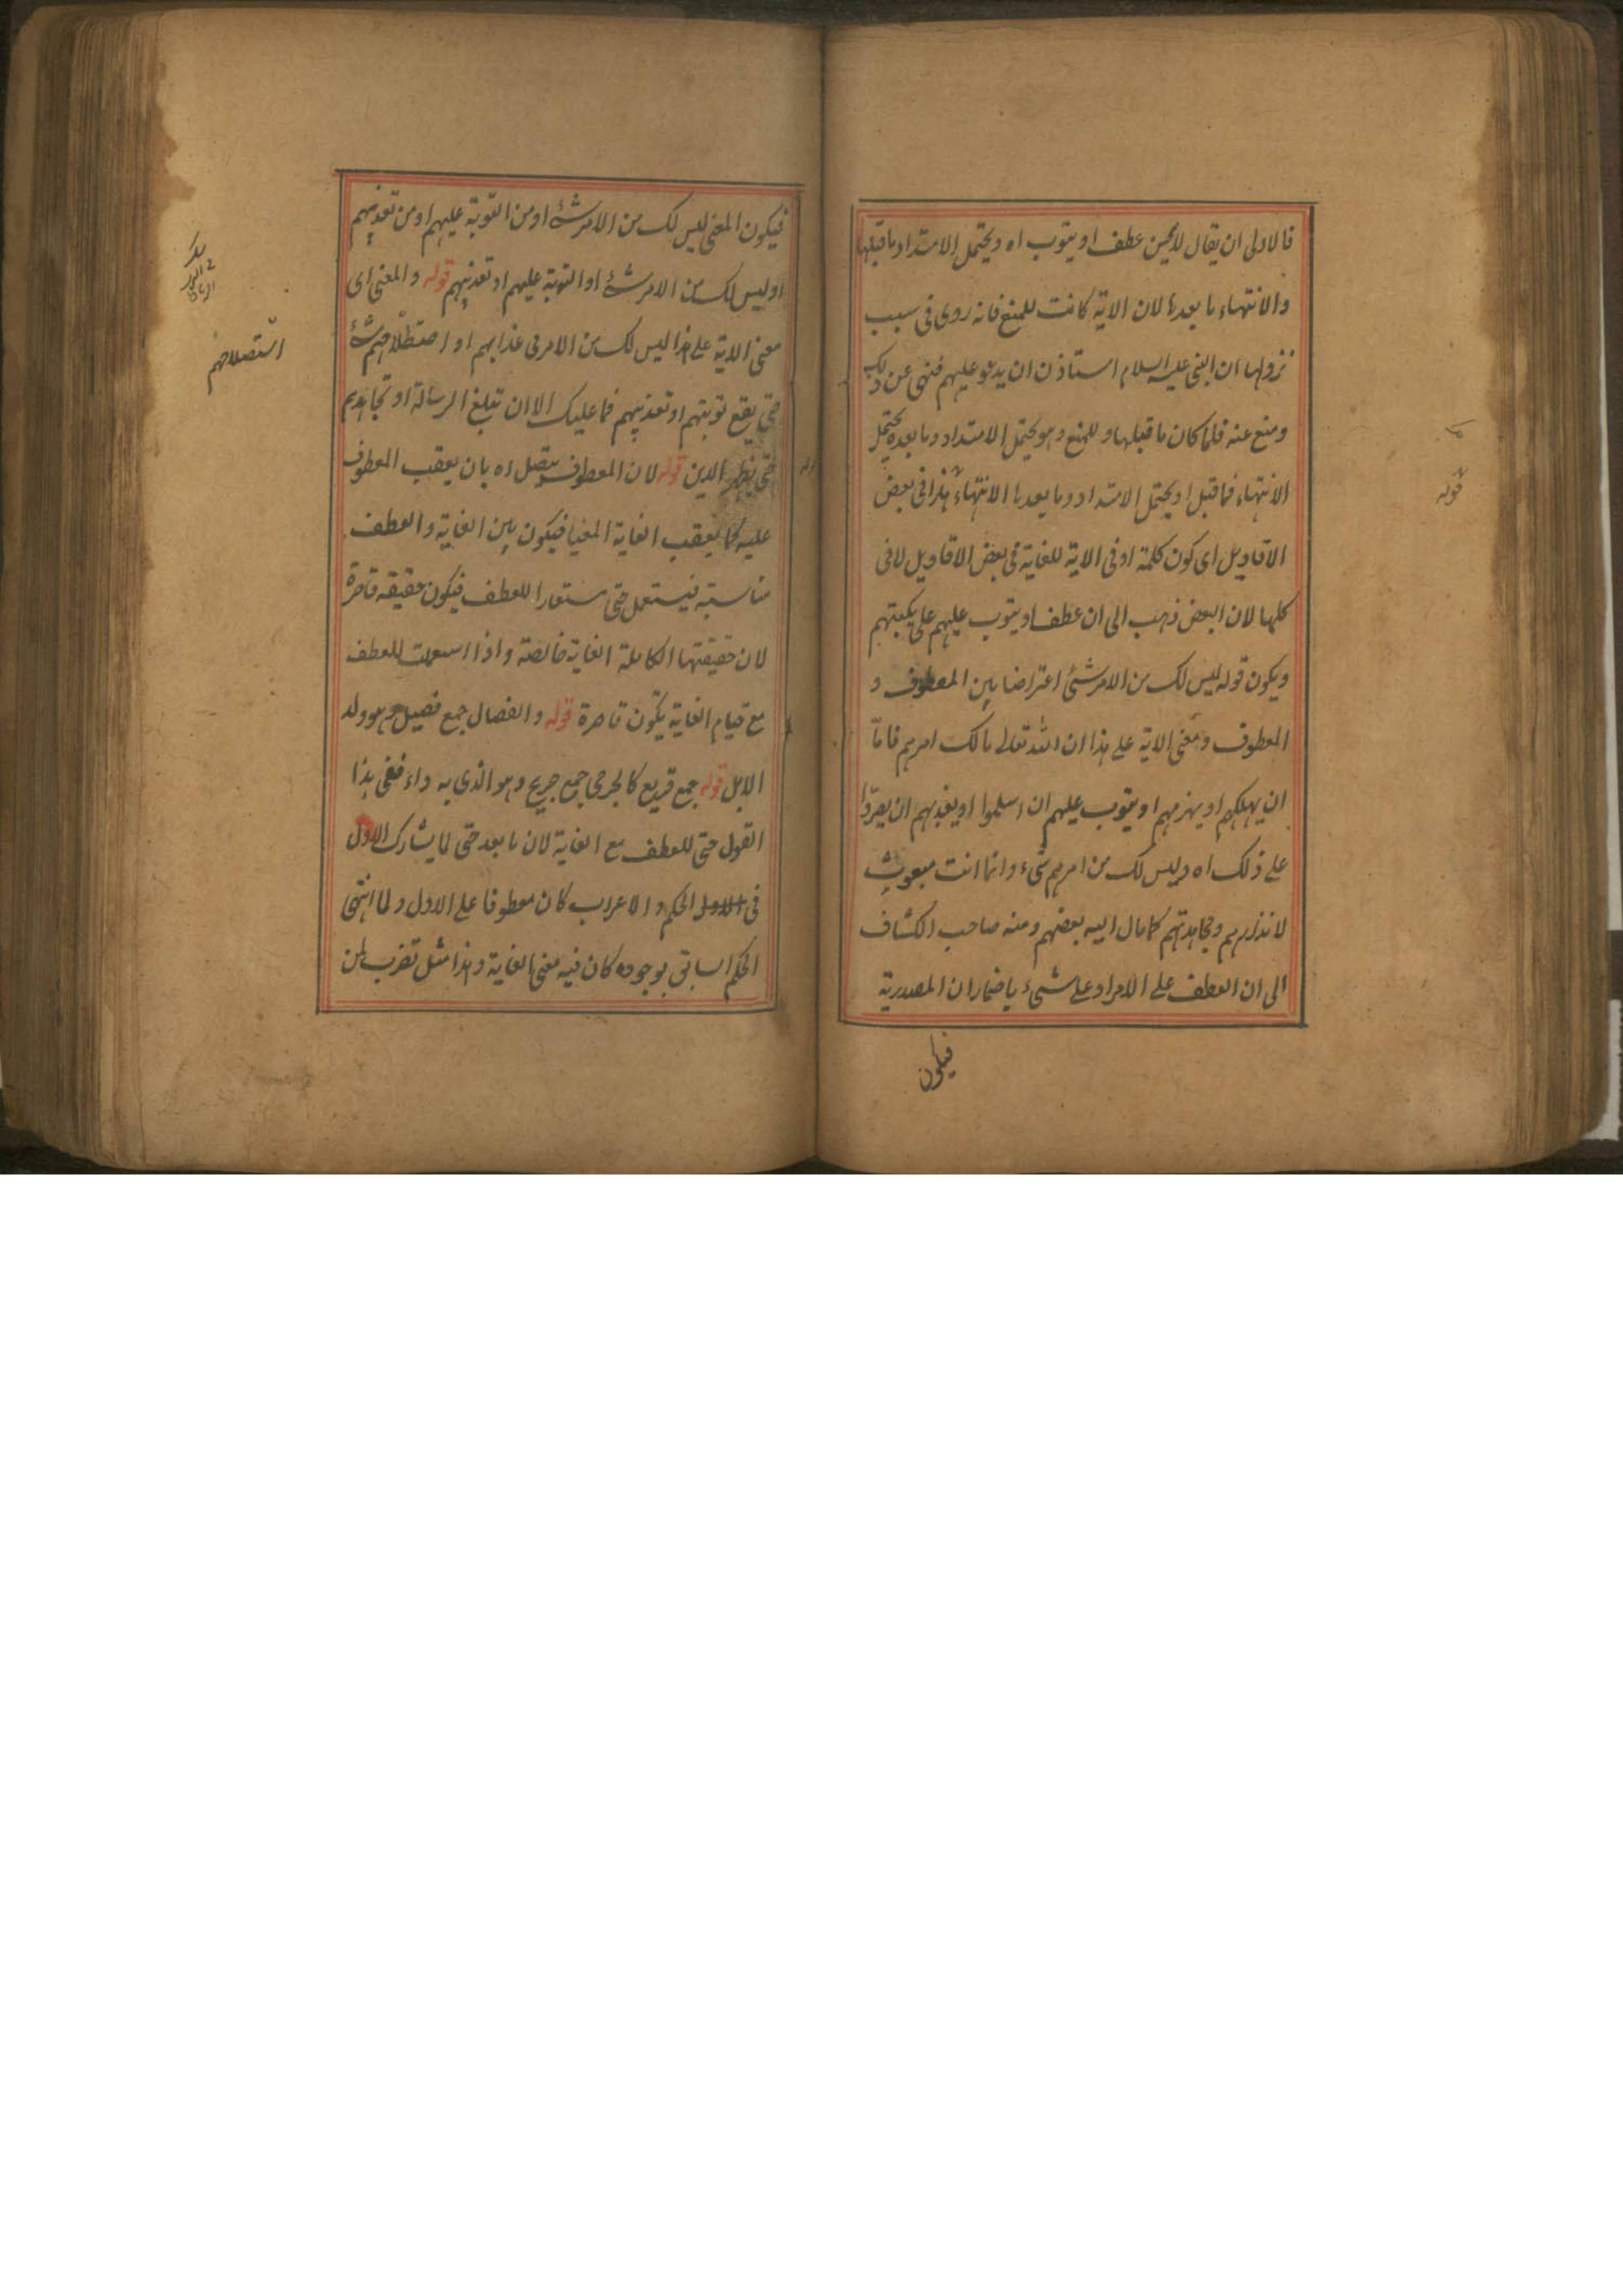 فالاولى ان يقال لا يحسن عطف او يتوب اه ويحتمل الامتداد ما قبلها
والانتهاء ما بعدها لان الاية كانت للمنع فانه روى فى سبب
نزولها ان النبى عليه السلام استاذن ان يدعو عليهم فنهى عن ذلك
ومنع عنه فلما كان ما قبلها و للمنع وهو يحتمل الامتداد وما بعده يحتمل
الانتهاء فما قبل او يحتمل الامتداد وما بعدها الانتهاء هذا فى بعض
الاقاويل اى كون كلمة او فى الاية للغاية فى بعض الاقاويل لا فى
كلها لان البعض ذهب الى ان عطف او يتوب عليهم على يكبتهم
ويكون قوله ليس لك من الامر شئ اعتراضا بين المعطوف و
المعطوف ومعنى الاية على هذا ان الله تعالى مالك امرهم فامّا
ان يهلكهم او يهزمهم او يتوب عليهم ان اسلموا او يعذبهم ان يصرّوا
على ذلك اه وليس لك من امرهم شىء وانما انت مبعوث
لانذارهم ومجاهدتهم كما مال اليه بعضهم ومنه صاحب الكشاف
الى ان العطف على الامر او على شىء باضمار ان المصدرية
فيكون
قوله
فيكون المعنى ليس لك من الامر شئ او من التوبة عليهم او من تعذيبهم
او ليس لك من الامر شئ او التوبة عليهم او تعذيبهم قوله والمعنى اى
معنى الاية على هذا ليس لك من الامر فى عذابهم او استصلاحهم شئ
حتى يقع توبتهم او تعذيبهم فما عليك الا ان تبلغ الرسالة او تجاهدهم
حتى يظهر الدين قوله لان المعطوف يتصل اه بان يعقب المعطوف
عليه كما يعقب الغاية المغيا فيكون بين الغاية والعطف
مناسبة فيستعمل حتى مستعارا للعطف فيكون حقيقة قاصرة
لان حقيقتها الكاملة الغاية خالصة واذا استعملت للعطف
مع قيام الغاية يكون قاصرة قوله والفصال جمع فصيل وهو ولد
الابل قوله جمع قريع كالجرحى جمع جريح وهو الذى به داء ففى هذا
القول حتى للعطف مع الغاية لان ما بعد حتى لما يشارك الاول
فى الاول الحكم والاعراب كان معطوفا على الاول ولما انتهى
الحكم السابق بوجوده كان فيه معنى الغاية وهذا مثل تضرب لمن
استصلاحهم